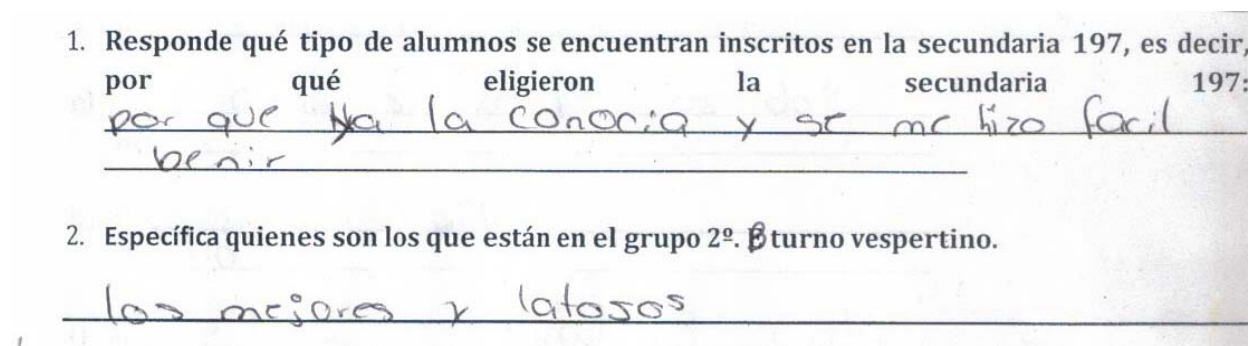 1. Responde qué tipo de alumnos se encuentran inscritos en la secundaria 197, es decir,
por qué eligieron la secundaria 197:
por que ya la conocia y se me hizo facil
benir
2. Específica quienes son los que están en el grupo 2º. B turno vespertino.
los mejores y latosos